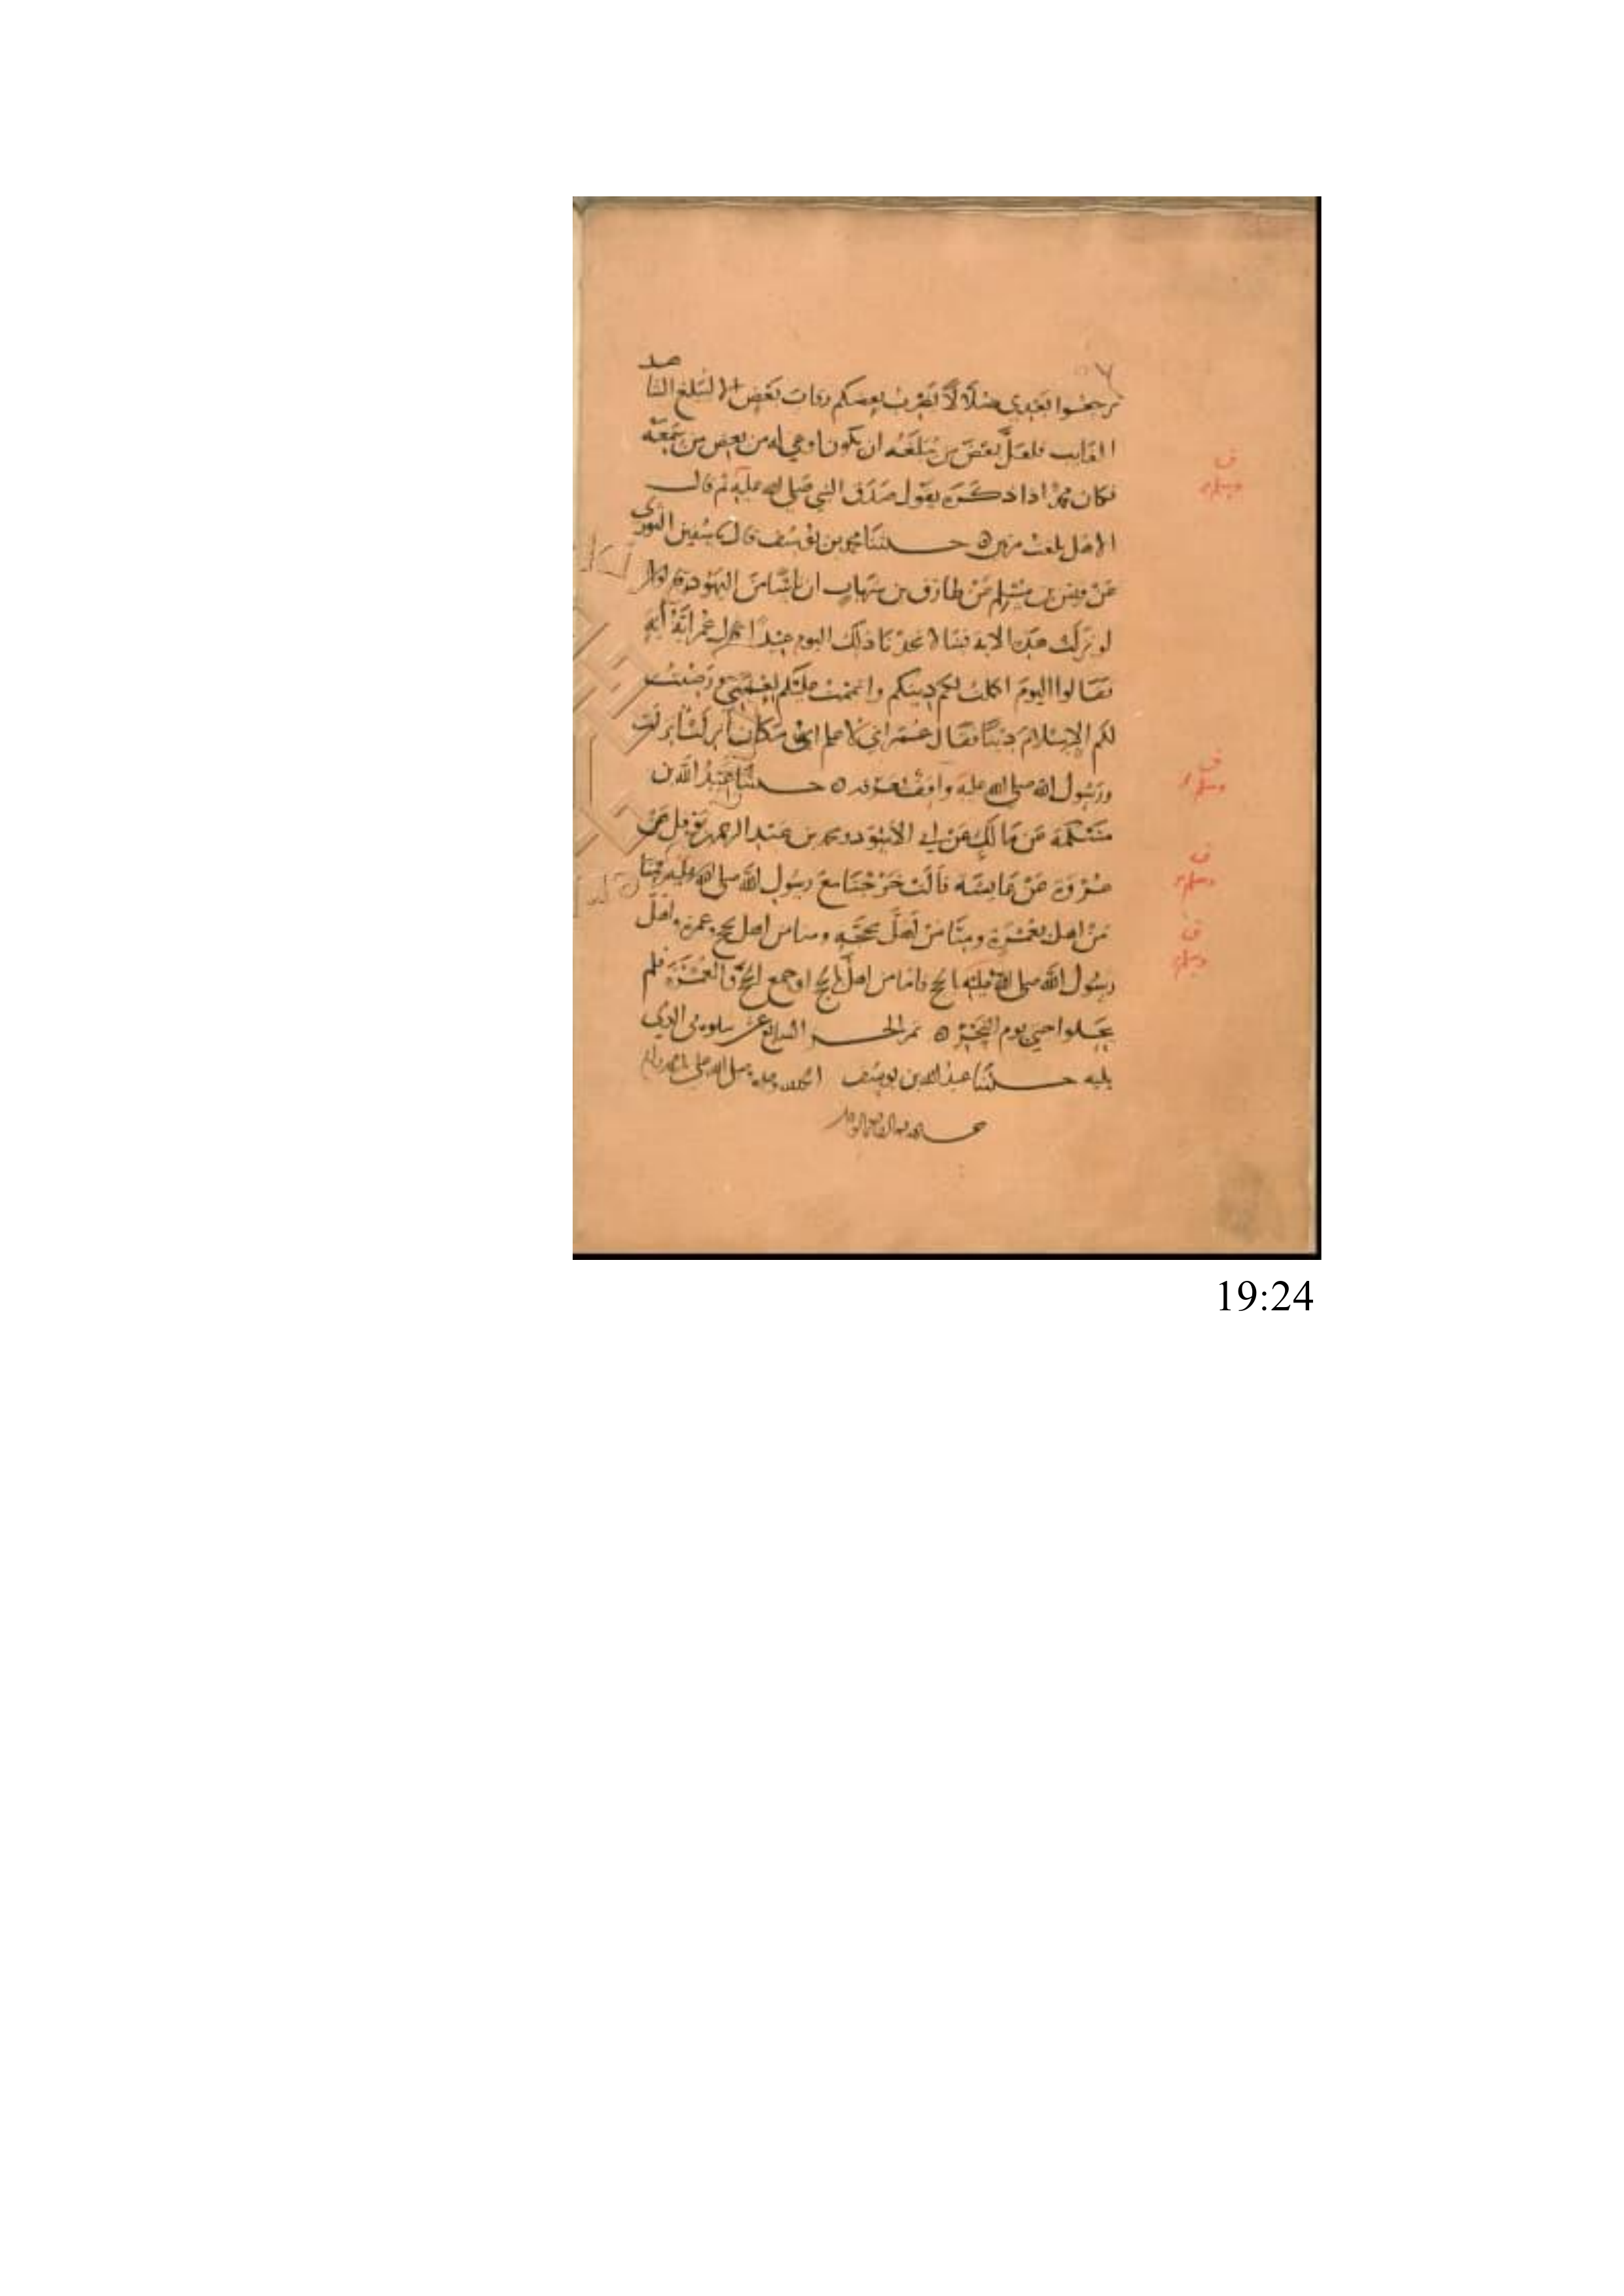 ترجعوا بعدي ضلالا يضرب بعضكم رقاب بعض الا ليبلغ الشاهد
الغايب فلعل بعض من يبلغه ان يكون اوعي له من بعض من سمعه
فكان محمد اذا ذكره يقول صدق النبي صلى الله عليه ثم قال
الا هل بلغت مرتين حدثنا محمد بن يوسف قال سفين الثوري
عن قيس بن مسلم عن طارق بن شهاب ان اناسا من اليهود قالوا
لو نزلت هذه الاية فينا لاتخذنا ذلك اليوم عيدا فقال عمر اية اية
فقالوا اليوم اكملت لكم دينكم واتممت عليكم نعمتي ورضيت
لكم الاسلام دينا فقال عمر اني لاعلم اي مكان انزلت انزلت
ورسول الله صلى الله عليه واقف بعرفه حدثنا عبد الله بن
مسلمة عن مالك عن ابي الاسود محمد بن عبد الرحمن بن نوفل عن
عروة عن عايشه قالت خرجنا مع رسول الله صلى الله عليه فمنا
من اهل بعمرة ومنا من اهل بحجه ومنا من اهل بحج وعمرة واهل
رسول الله صلى الله عليه بالحج فاما من اهل بالحج او جمع الحج والعمرة فلم
يحلوا حتي يوم النحر السابع عشر يتلوه في الذي
يليه حدثنا عبد الله بن يوسف الحمد لله وحده وصلى الله على
ف
وسلم
ف
وسلم
ف
وسلم
ف
وسلم
19:24